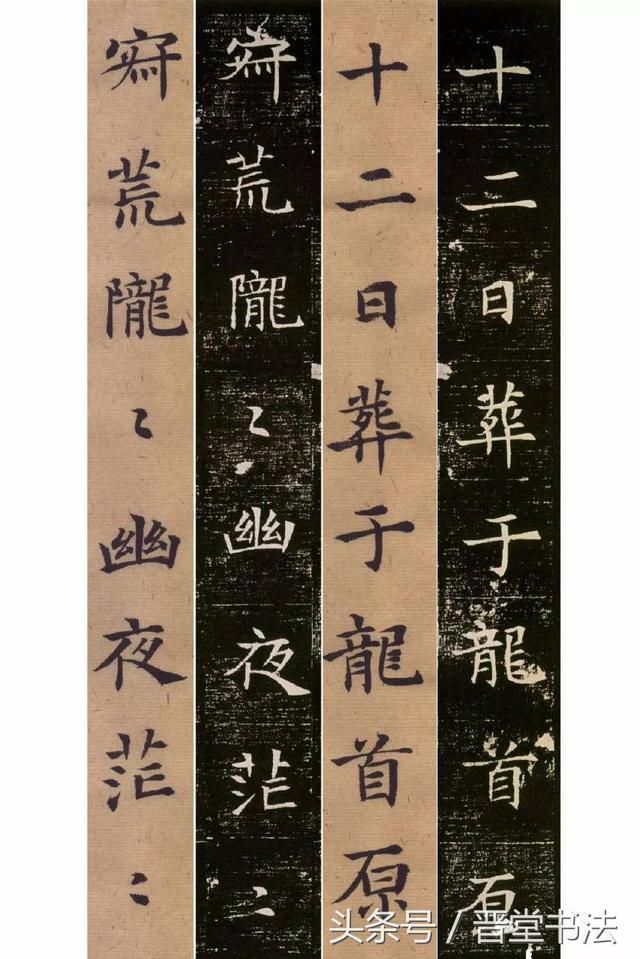 十二日葬于龍首原
十二日葬于龍首原
荒隴〻幽夜茫〻
荒隴〻幽夜茫〻
头条号 / 晋堂书法